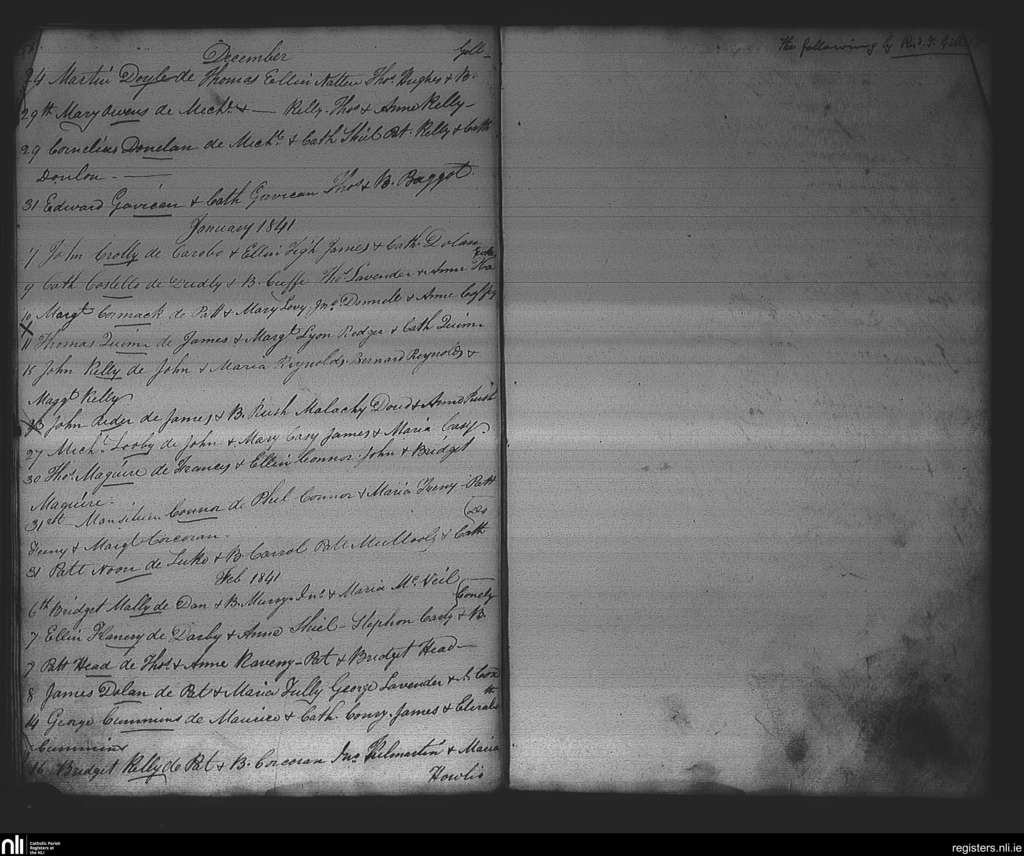 December
24 Martin Doyle de Thomas Ellin Thos Hughes & B.
29th Mary Owens de Michl & — Kelly. Thos & Anne Kelly -
29 Cornelius Donelan de Michl & Cath Shiel Pat. Kelly & Cath
Donlon - —
31 Edward Gavican & Cath Gavican Thos & B. Baggot
January 1841
7 John Crolly de & Ellin James & Cath Dolan
9 Cath Costello de Dudly & B. Cuffe Thos Lavender & Anne
10 Margt Cormack de Patt & Mary Levy Jno & Anne
11 Thomas Quinn de James & Margt Lyon & Cath Quinn
15 John Kelly de John & Maria Reynolds. Bernard Reynolds &
Magt Kelly
John Rider de James & B. Rush Malachy Doud & Anne Rush
27 Michl Looby de John & Mary Casy James & Maria Casy
30 Thos Maguire de Francis & Ellin Connor. John & Bridget
Maguire.
31st Connor de Phel Connor & Maria Feeny - Patt
Feeny & Margt Corcoran.
31 Patt Noon de Luke & B. Carrol Patt & Cath
Feb 1841
6th Bridget Mally de Dan & B. Murry. Jno & Maria Mc Neil
7 Ellin Flanery de Darby & Anne Shiel - Stephen & B.
7 Patt Head de Thos & Anne Raveny - Pat & Bridget Head —
8 James Dolan de Pat & Maria Tully George Lavender &
14 George Cummins de Maurice & Cath. Conry. James &
Cummins
16 Bridget Kelly de Pat & B. Corcoran Jno Kilmartin & Maria
the following by Revd
nli
Catholic Parish
Registers at
the NLI
registers.nli.ie